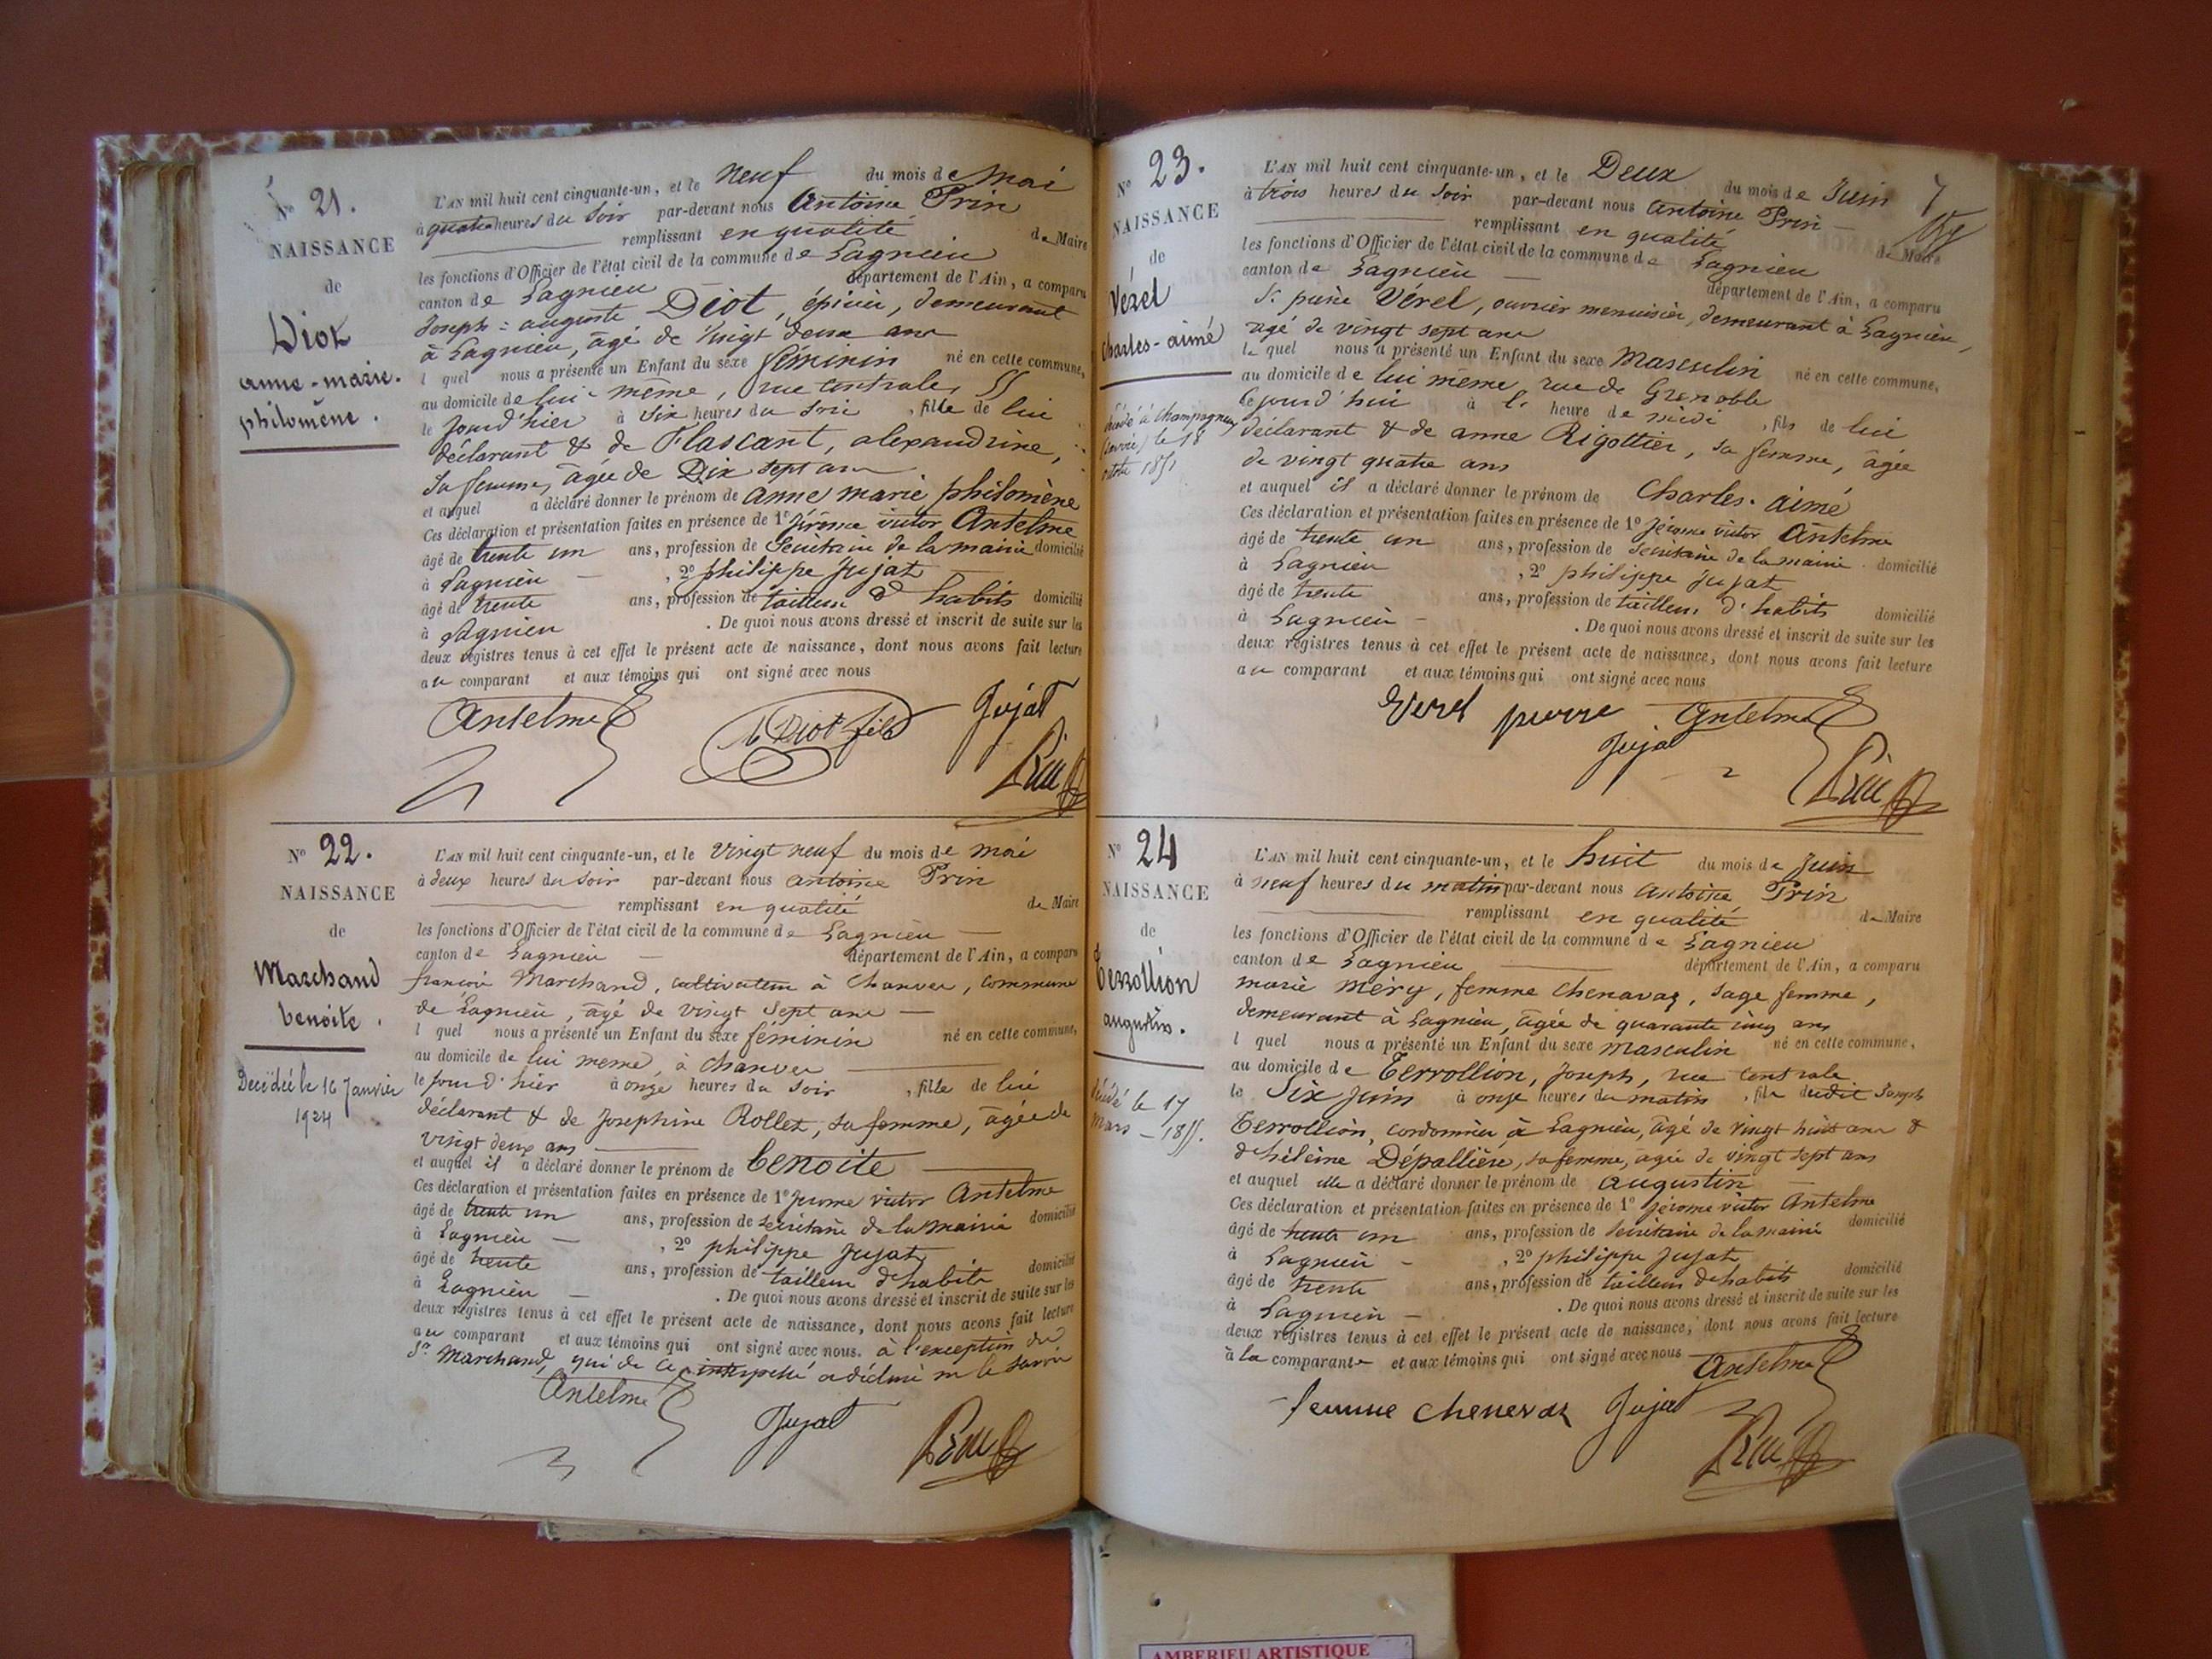 N° 21.
NAISSANCE
de
Diot
anne-marie.
philomène.
L'AN mil huit cent cinquante-un, et le neuf du mois de mai
à quatre heures du soir par-devant nous Antoine Prin
remplissant en qualité de Maire
les fonctions d'Officier de l'état civil de la commune de Lagnieu
canton de Lagnieu département de l'Ain, a comparu
Joseph = auguste Diot, épicier, demeurant
à Lagnieu, âgé de vingt deux ans
l quel nous a présenté un Enfant du sexe féminin né en cette commune,
au domicile de lui-même, rue centrale,
le jourd'hier à six heures du soir, fille de lui
déclarant & de Flascant, alexandrine,
sa femme, âgée de Dix sept ans
et auquel a déclaré donner le prénom de anne marie philomène
Ces déclaration et présentation faites en présence de 1° jérôme victor Antelme
âgé de trente un ans, profession de Secrétaire de la mairie domicilié
à Lagnieu, 2° philippe Jujat
âgé de trente ans, profession de tailleur d'habits domicilié
à Lagnieu. De quoi nous avons dressé et inscrit de suite sur les
deux registres tenus à cet effet le présent acte de naissance, dont nous avons fait lecture
au comparant et aux témoins qui ont signé avec nous
Antelme Diot fils Jujat
Prin
N° 22.
NAISSANCE
de
Marchand
benoite.
Décédée le 16 Janvier
1924
L'AN mil huit cent cinquante-un, et le vingt neuf du mois de mai
à deux heures du soir par-devant nous antoine Prin
remplissant en qualité de Maire
les fonctions d'Officier de l'état civil de la commune de Lagnieu
canton de Lagnieu département de l'Ain, a comparu
françois Marchand, cultivateur à Chanves, commune
de Lagnieu, âgé de vingt sept ans
l quel nous a présenté un Enfant du sexe féminin né en cette commune,
au domicile de lui meme, à chanves
le jourd'hier à onze heures du soir, fille de lui
déclarant & de Josephine Rollet, sa femme, âgée de
vingt deux ans
et auquel il a déclaré donner le prénom de benoite
Ces déclaration et présentation faites en présence de 1° jerome victor Antelme
âgé de trente un ans, profession de secrétaire de la mairie domicilié
à Lagnieu, 2° philippe Jujat
âgé de trente ans, profession de tailleur d'habits domicilié
à Lagnieu. De quoi nous avons dressé et inscrit de suite sur les
deux registres tenus à cet effet le présent acte de naissance, dont nous avons fait lecture
au comparant et aux témoins qui ont signé avec nous. à l'exception du
Sr Marchand, qui de ce interpellé a déclaré ne le savoir
Antelme Jujat Prin
N° 23.
NAISSANCE
de
Vérel
Charles-aimé
décédé à Champagneux
(Savoie) le 18
octobre 1851
L'AN mil huit cent cinquante-un, et le Deux du mois de Juin 7
à trois heures du soir par-devant nous antoine Prin
remplissant en qualité de Maire
les fonctions d'Officier de l'état civil de la commune de Lagnieu
canton de Lagnieu département de l'Ain, a comparu
Sr pierre Vérel, ouvrier menuisier, demeurant à Lagnieu,
agé de vingt sept ans
le quel nous a présenté un Enfant du sexe Masculin né en cette commune,
au domicile de lui même, rue de Grenoble
le jourd'hui à l' heure de midi, fils de lui
déclarant & de anne Rigottier, sa femme, âgée
de vingt quatre ans
et auquel il a déclaré donner le prénom de Charles. aimé
Ces déclaration et présentation faites en présence de 1° jérome victor Antelme
âgé de trente un ans, profession de secrétaire de la mairie. domicilié
à Lagnieu, 2° philippe Jujat
âgé de trente ans, profession de tailleur d'habits domicilié
à Lagnieu. De quoi nous avons dressé et inscrit de suite sur les
deux registres tenus à cet effet le présent acte de naissance, dont nous avons fait lecture
au comparant et aux témoins qui ont signé avec nous
Verel pierre Antelme
Jujat Prin
N° 24
NAISSANCE
de
Terrollion
augustin.
décédé le 17
Mars - 1855.
L'AN mil huit cent cinquante-un, et le huit du mois de Juin
à neuf heures du matin par-devant nous antoine Prin
remplissant en qualité de Maire
les fonctions d'Officier de l'état civil de la commune de Lagnieu
canton de Lagnieu département de l'Ain, a comparu
marie Méry, femme Chenavaz, Sage femme,
demeurant à Lagnieu, âgée de quarante cinq ans
l quel nous a présenté un Enfant du sexe masculin né en cette commune,
au domicile de Terrollion, Joseph, rue centrale
le Six juin à onze heures du matin, fils dudit Joseph
Terrollion, cordonnier à Lagnieu, âgé de vingt huit ans &
d'hélène Dépallière, sa femme, agée de vingt sept ans
et auquel elle a déclaré donner le prénom de augustin
Ces déclaration et présentation faites en présence de 1° jérome victor Antelme
âgé de trente un ans, profession de secrétaire de la mairie domicilié
à Lagnieu, 2° philippe Jujat
âgé de trente ans, profession de tailleur d'habits domicilié
à Lagnieu. De quoi nous avons dressé et inscrit de suite sur les
deux registres tenus à cet effet le présent acte de naissance, dont nous avons fait lecture
à la comparante et aux témoins qui ont signé avec nous Antelme
femme chenevaz Jujat
Prin
AMBERIEU ARTISTIQUE